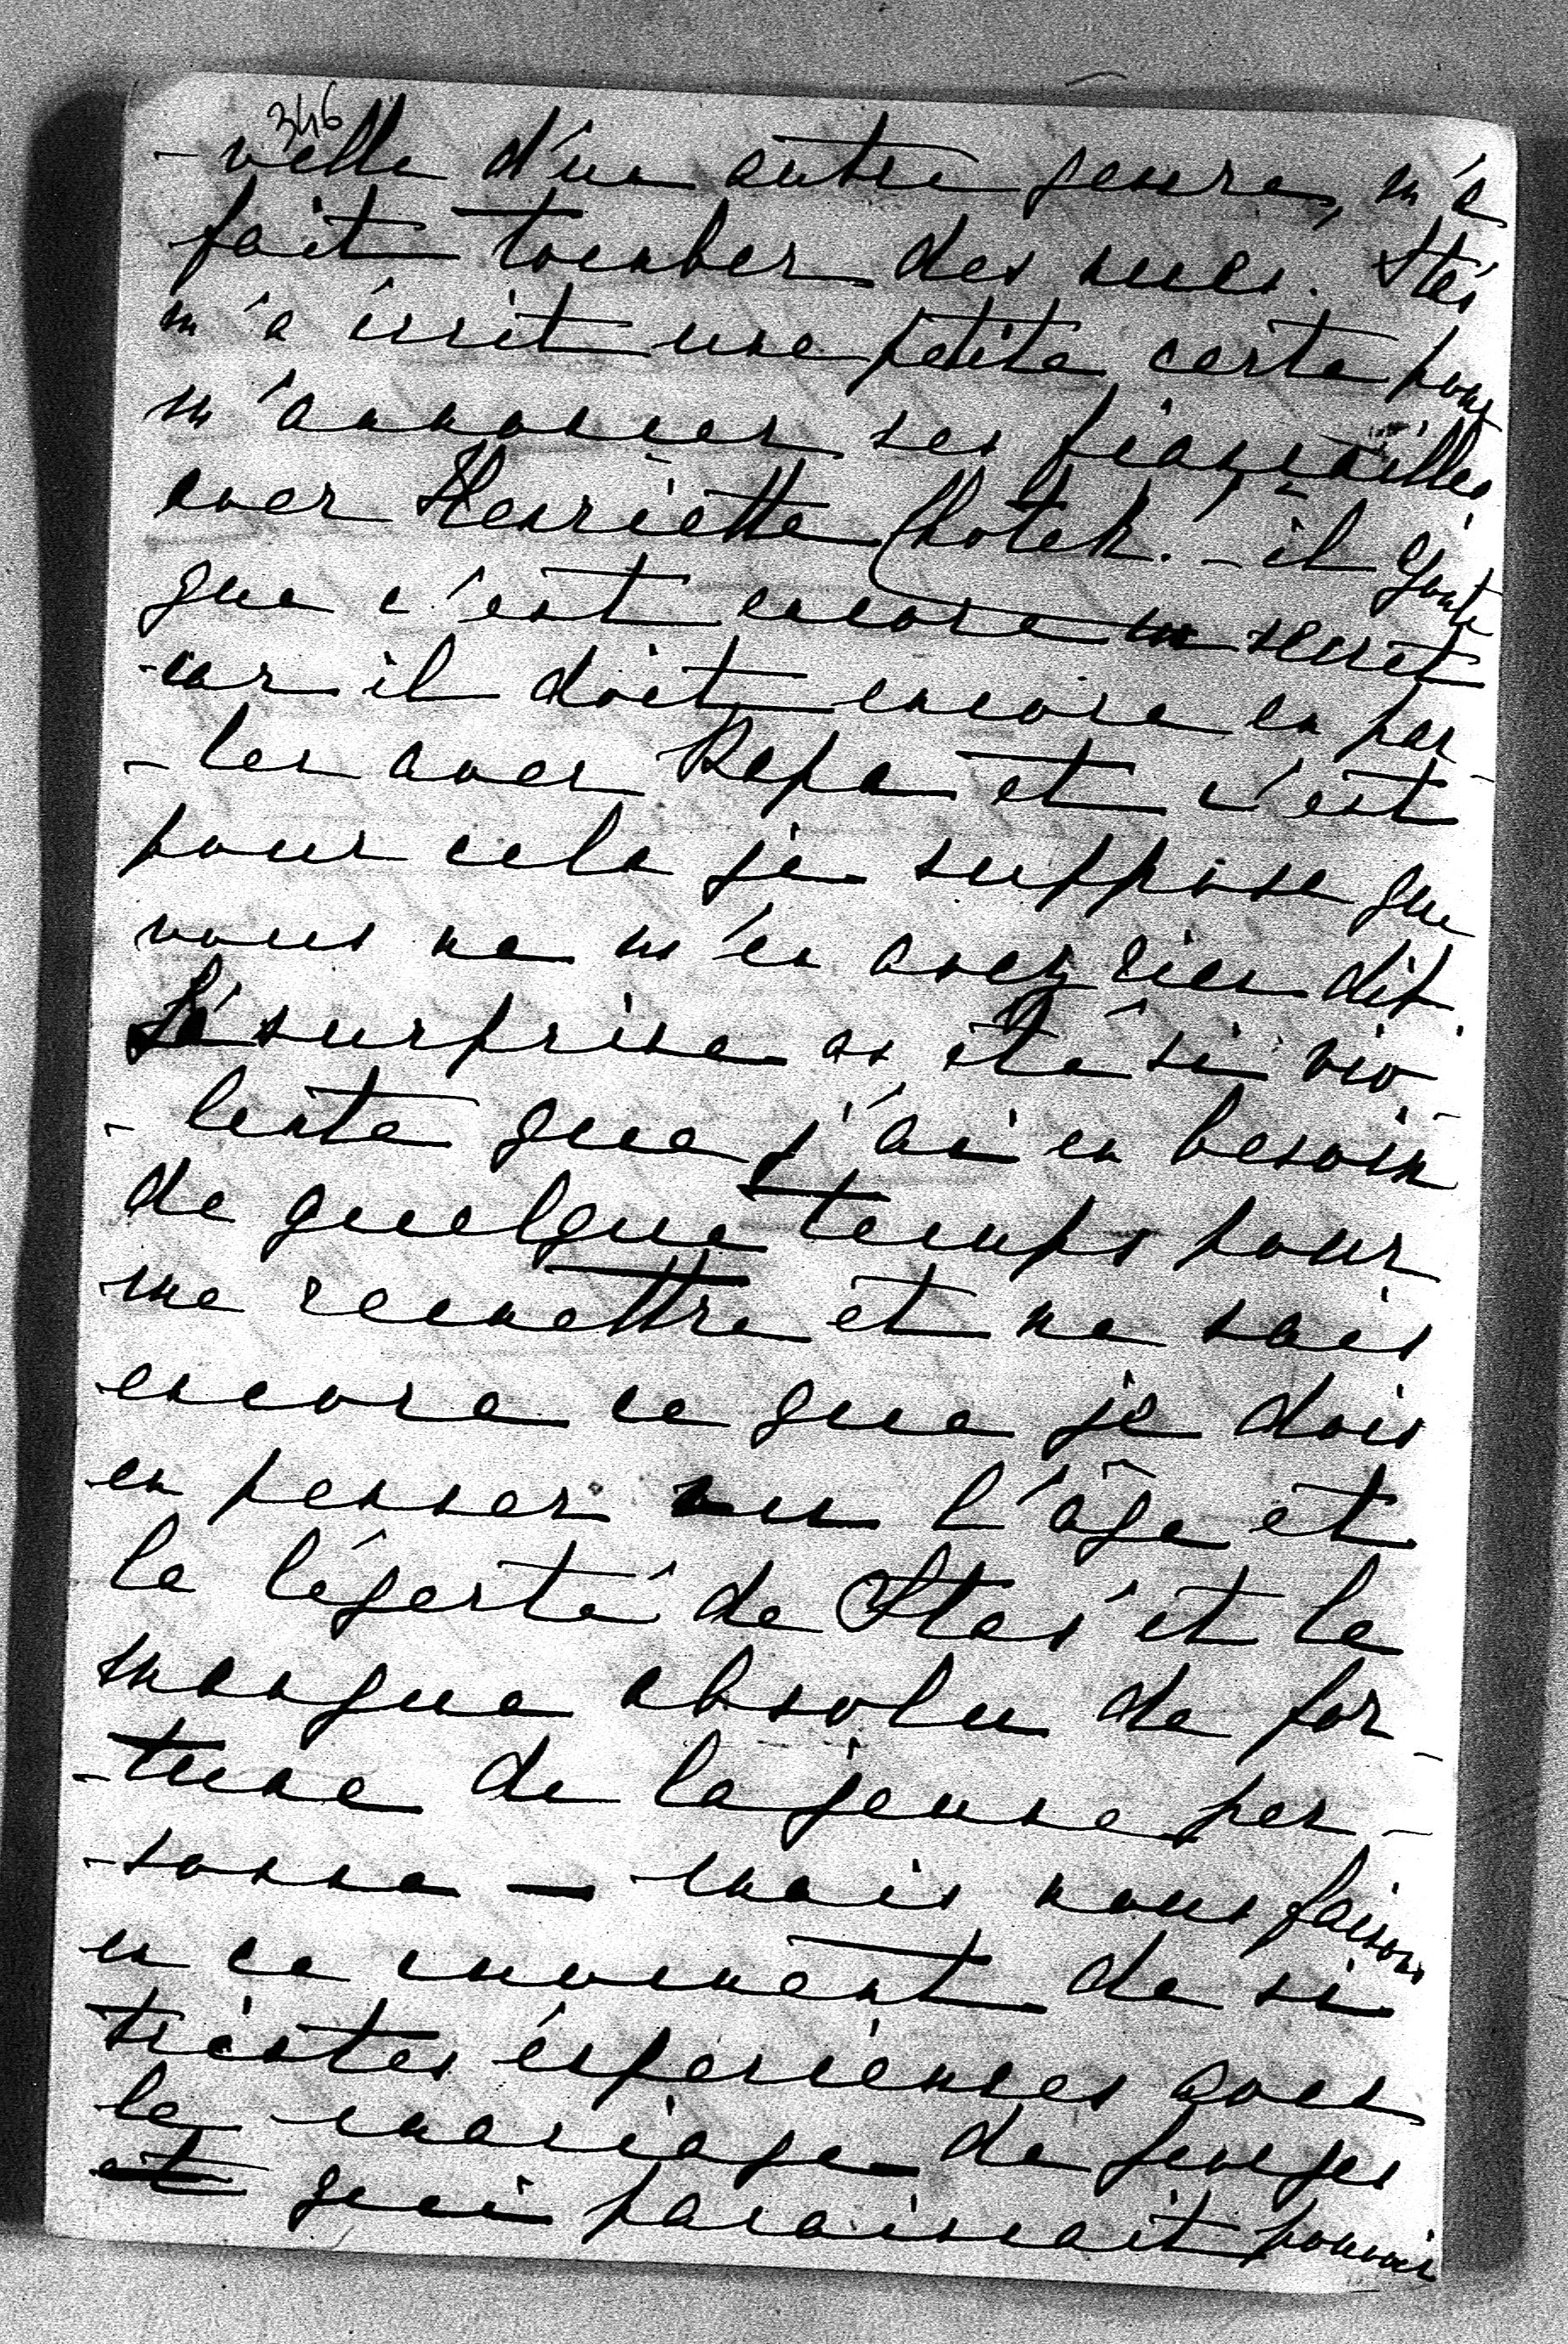 346
-velle d'un autre genre, m'a
fait tomber des nues. Staś
m'a écrit une petite carte pour
m'annoncer ses fiançailles
avec Henriette Chotek. - il ajoute
que c'est encore un secret
car il doit encore en par-
-ler avec Papa et c'est
pour cela je suppose que
vous ne m'en avez rien dit.
La surprise a été si vio-
-lente que j'ai eu besoin
de quelque temps pour
me remettre et ne sais
encore ce que je dois
en penser vu l'âge et
la légerté de Staś et le
manque absolu de for-
-tune de la jeune per-
-sonne — mais nous faisons
en ce moment de si
tristes éxperiences avec
le mariage de Georges
et qui paraissait pouvoir